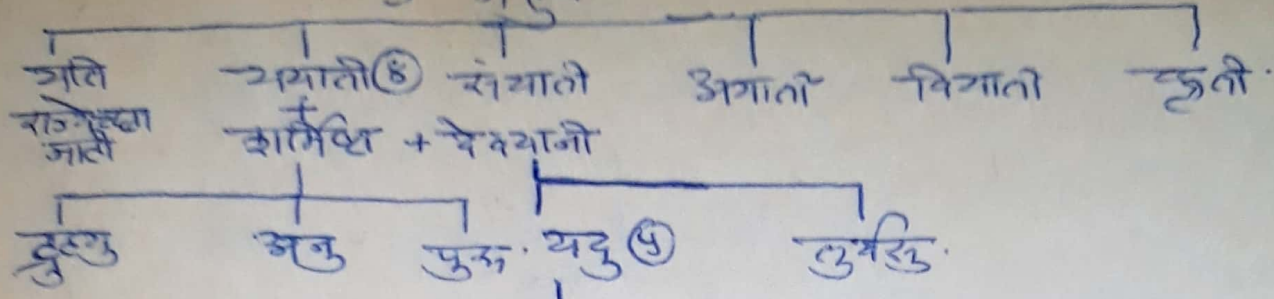 यति ययाती ४ संयाती अयाती वियाती कृती.
जाती शर्मिष्ठा + देवयानी
द्रुह्यु अनु पुरू. यदु ५ तुर्वसु.